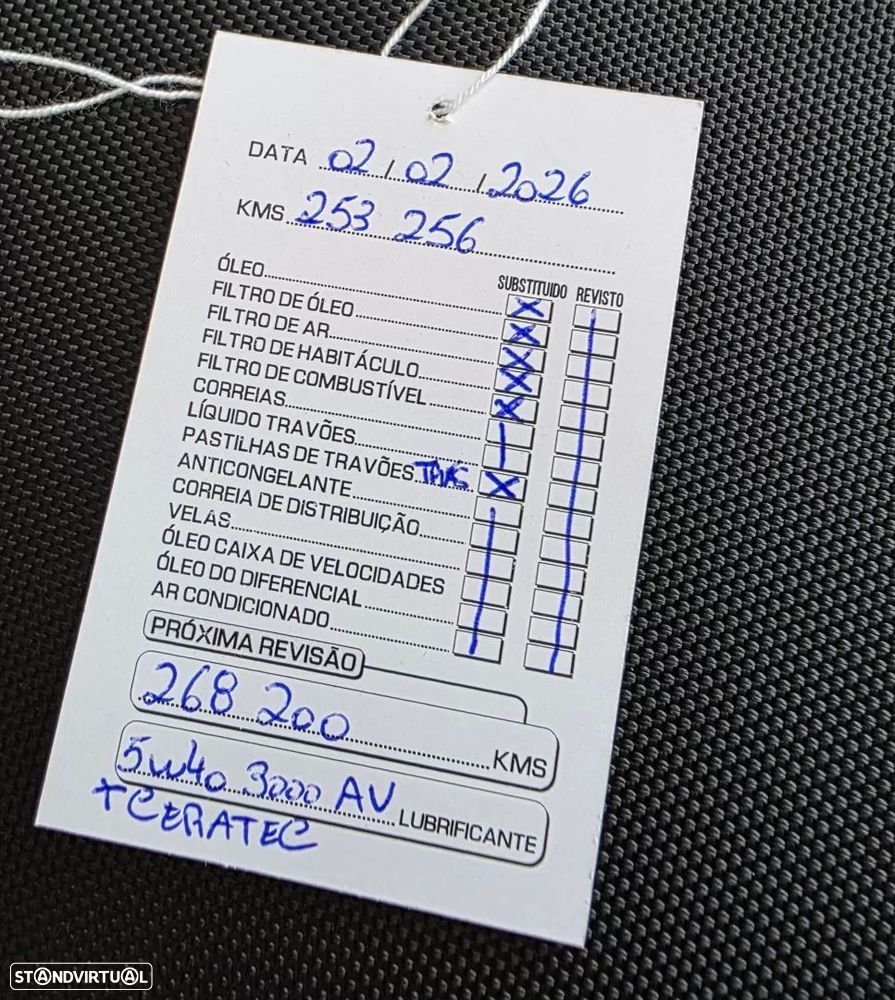 DATA 02 / 02 / 2026
KMS 253 256
SUBSTITUIDO REVISTO
ÓLEO X
FILTRO DE ÓLEO X
FILTRO DE AR X
FILTRO DE HABITÁCULO X
FILTRO DE COMBUSTÍVEL X
CORREIAS
LÍQUIDO TRAVÕES
PASTILHAS DE TRAVÕES TRÁS X
ANTICONGELANTE
CORREIA DE DISTRIBUIÇÃO
VELAS
ÓLEO CAIXA DE VELOCIDADES
ÓLEO DO DIFERENCIAL
AR CONDICIONADO
PRÓXIMA REVISÃO
268 200 KMS
5W40 3000 AV LUBRIFICANTE
+ CERATEC
STANDVIRTUAL